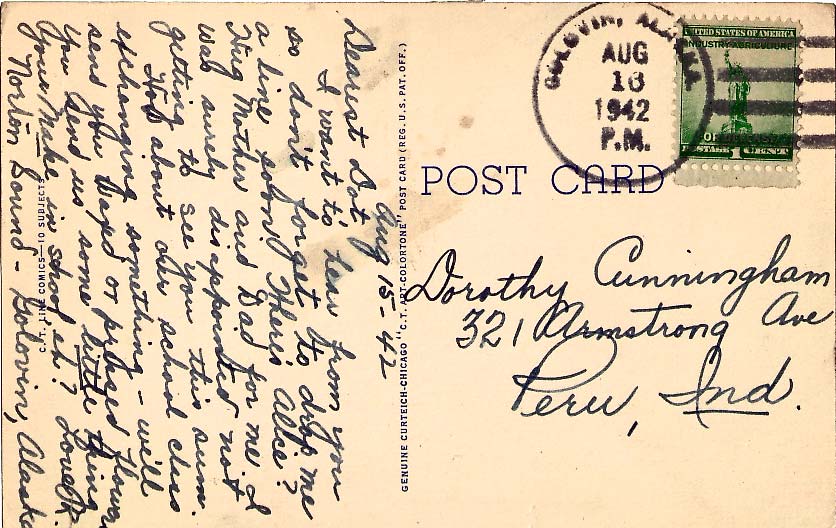 Aug 15-42
Dearest Dot,
I want to hear from you
so don't forget to drop me
a line soon. There's Alice?
Hug Mother and Dad for me. I
was surely disappointed not
getting to see you this sum.
How about our school class
exchanging something - we'll
send you waxed or pressed flowers
You send us some little thing
your make in school, eh? Love R.
Norton Sound - Golovin, Alaska
C.T. LINE COMICS—10 SUBJECTS
GENUINE CURTEICH-CHICAGO "C.T. ART-COLORTONE" POST CARD (REG. U.S. PAT. OFF.)
GOLOVIN, ALASKA.
AUG
18
1942
P.M.
UNITED STATES OF AMERICA
INDUSTRY AGRICULTURE
POSTAGE 1 CENT
POST CARD
Dorothy Cunningham
321 Armstrong Ave
Peru, Ind.